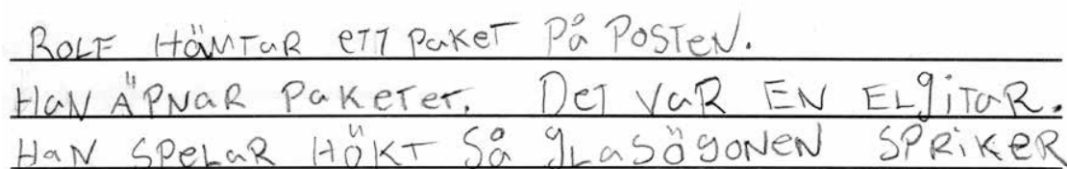 ROLF HÄMTAR ETT PAKET PÅ POSTEN.
HAN ÄPNAR PAKETET. DET VAR EN ELGITAR.
HAN SPELAR HÖKT SÅ GLASÖGONEN SPRIKER